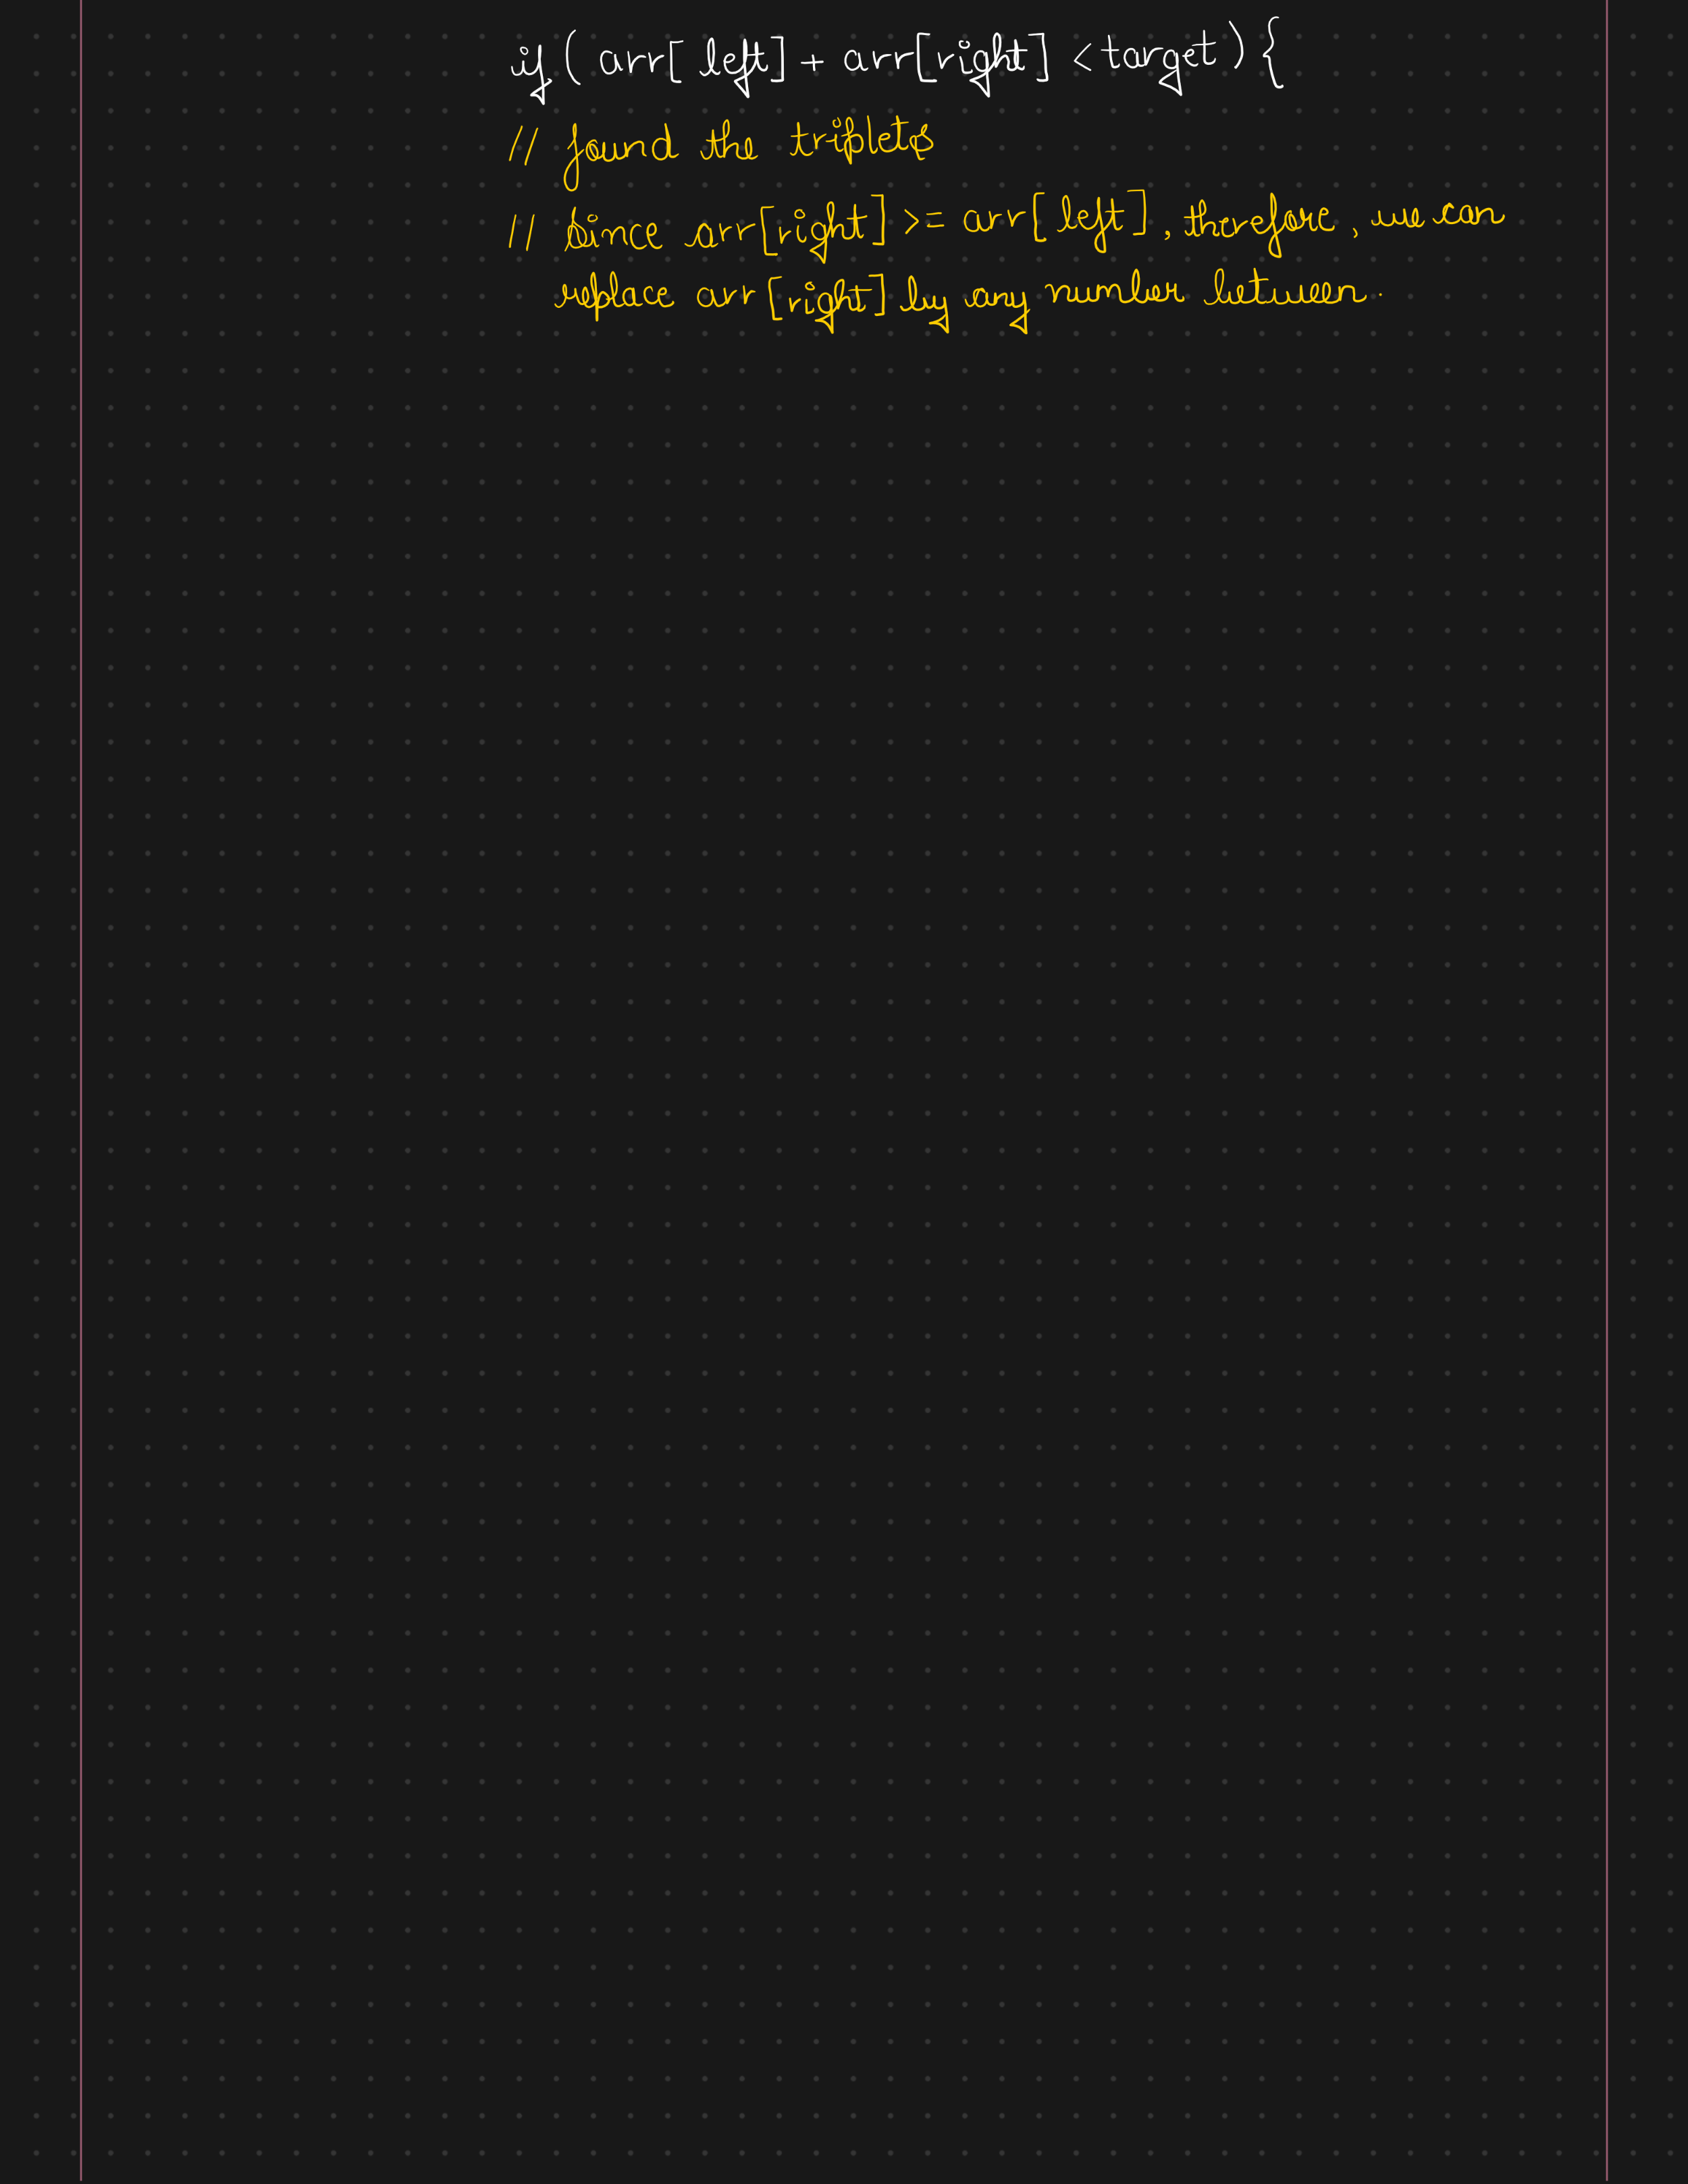 if ( arr[ left] + arr[right] < target) {
// found the triplets
// Since arr[right] >= arr[ left], therefore, we can
replace arr[right] by any number between.